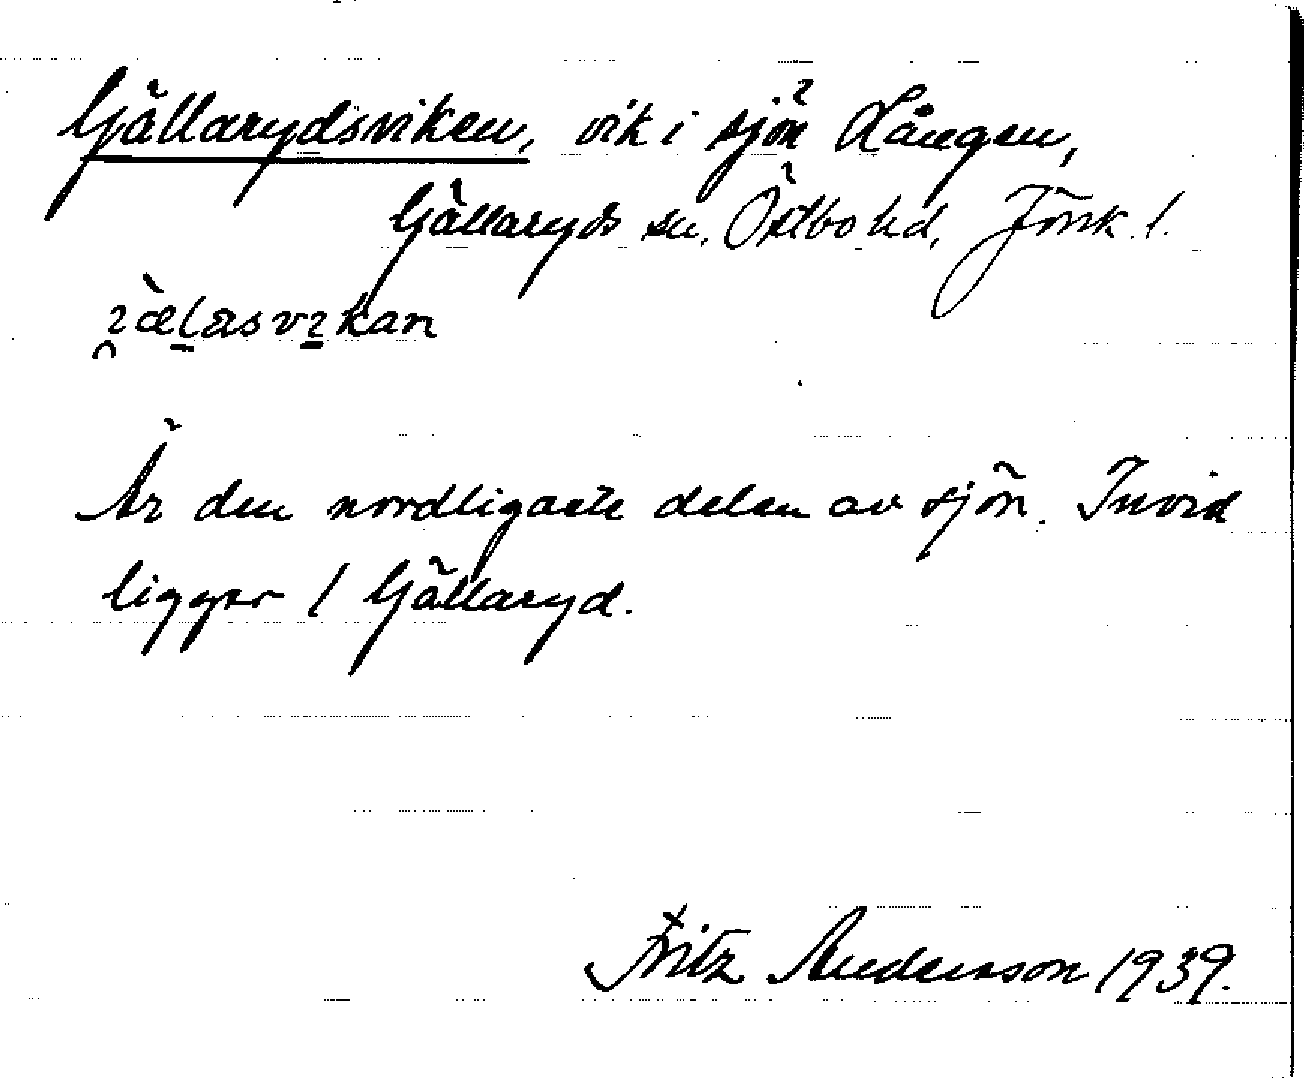 Gällarydsviken, vik i sjön Lången,
Gällaryds sn, Östbo hd, Jönk. l.
Är den nordligaste delen av sjön. Invid
ligger / Gällaryd.
Fritz Anderson 1939.